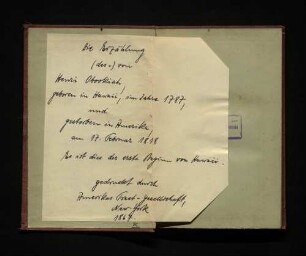 Die Erzählung
(des=) von
Henri Obookiah,
geboren in Hawaii, im Jahre 1787,
und
gestorben in Amerika
am 17. Februar 1818
Es ist dies der erste Beginn von Hawaii.
gedruckt durch
Amerikas Tract-Gesellschaft,
New-York
1867